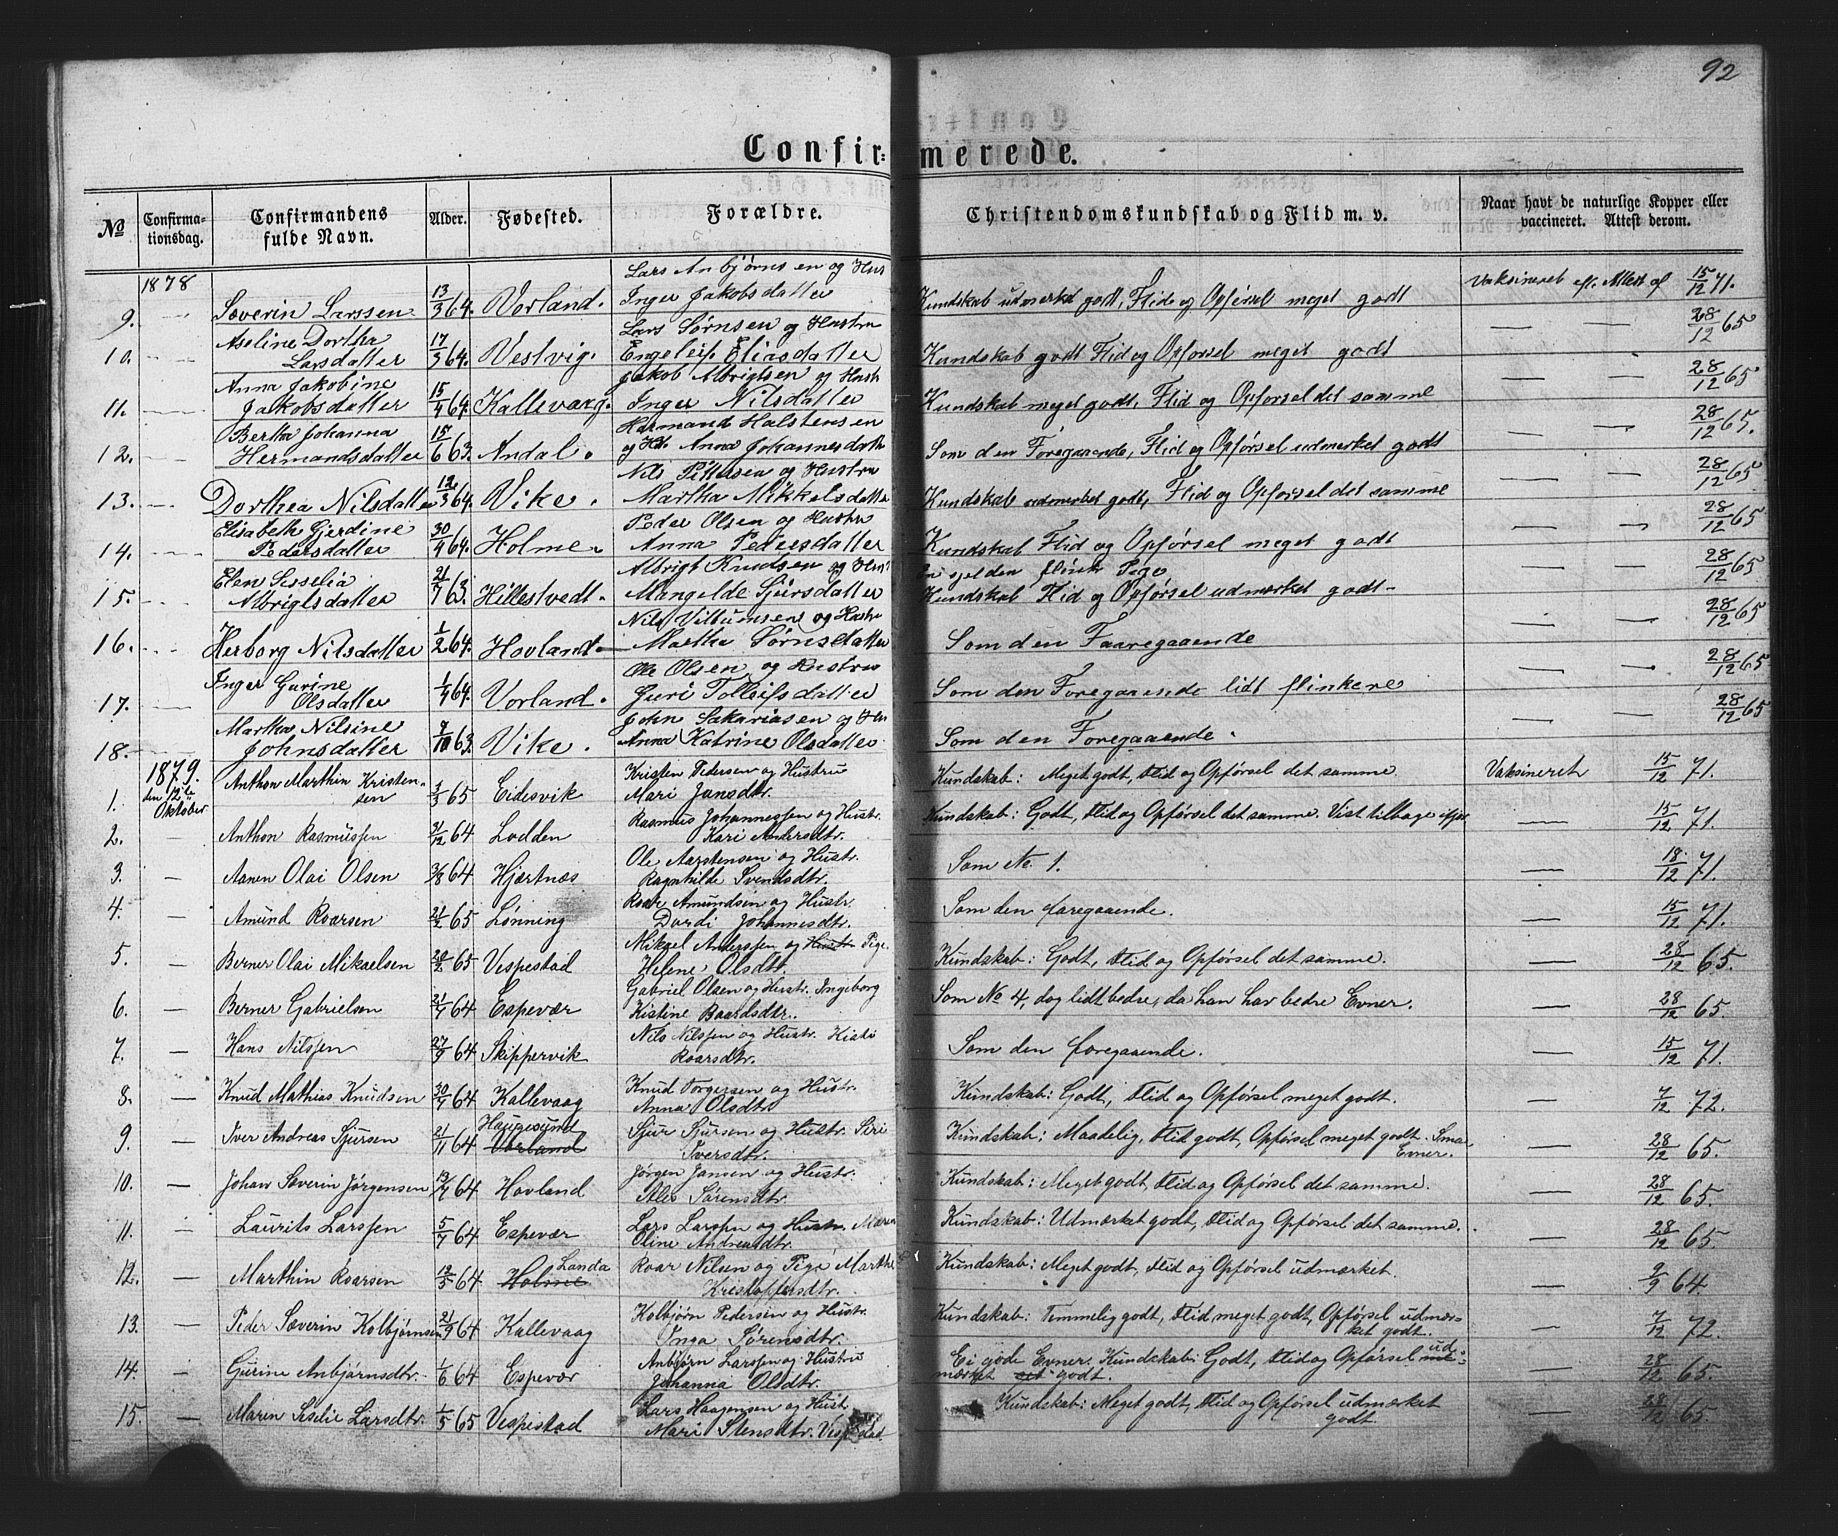 92
Confirmerede.
No Confirmationsdag. Confirmandens fulde Navn. Alder. Fødested. Forældre. Christendomskundskab og Flid m. v. Naar havt de naturlige Kopper eller vaccineret. Attest derom.
1878
Lars Anbjørnsen og Hus
9. Sæverin Larssen 13/3 64. Vorland. Inger Jakobsdatter Kundskab udmerket godt, Flid og Opførsel meget godt Vaksineret efr. Attest af 15/12 71.
Aseline Dorthea Lars Sørnsen og Hustru
10. Larsdatter 17/3 64. Vestvig. Engeleif Eliasdatter Kundskab godt Flid og Opførsel meget godt — — 28/12 65
Anna Jakobine Jakob Albrigtsen og Hustr
11. Jakobsdatter 15/4 64. Kallevaag. Inger Nilsdatter Kundskab meget godt, Flid og Opførsel det samme — — 28/12 65
Bertha Johanna Harmand Halstensen
12. Hermandsdatter 15/6 63. Andal. og Hst. Anna Johannesdatt Som den Foregaaende, Flid og Opførsel udmerket godt — — 28/12 65.
Nils Pettersen og Hustru
13. Dorthea Nilsdatter 12/3 64. Vike. Martha Mikkelsdatter Kundskab udmerket godt, Flid og Opførsel det samme — — 28/12 65
Elisabeth Gjerdine Peder Olsen og Hustru
14. Pedersdatter 30/4 64. Holme. Anna Pedersdatter Kundskab Flid og Opførsel meget godt — — 28/12 65
Elen Sesselia Albrigt Knudsen og Hust En sjelden flink Pige
15. Albrigtsdatter 21/7 63. Hillestvedt. Mangelde Sjursdatter Kundskab Flid og Opførsel udmerket godt — — — 28/12 65
Nils Villumsen og Hustr
16. Herborg Nilsdatter 1/2 64. Hovland Martha Sørnsdatter Som den Faaregaaende — — 28/12 65
Inger Gurine Ole Olsen og Hustru
17. Olsdatter 1/4 64. Vorland. Guri Tolleifsdatter Som den Foregaaende lidt flinkere — — 28/12 65
Martha Nilsine John Sakariasen og Hus
18. Johnsdatter 9/10 63. Vike. Anna Katrine Olsdatter Som den Foregaaende. — — 28/12 65
1879. den 12te Oktober
1. Anthon Marthin Kristensen 3/3 65 Eidesvik Kristen Pedersen og Hustru Mari Jansdtr. Kundskab: Meget godt, Flid og Opførsel det samme. Vaksineret 15/12 71.
2. — Anthon Rasmussen 3/12 64 Lodden Rasmus Johannessen og Hustr. Kari Andersdtr. Kundskab: Godt, Flid og Opførsel det samme. Vist tilbage ifjor — 15/12 71.
3. — Aanen Olai Olsen 3/8 64 Hjærtnæs Ole Aarstensen og Hustr. Ragnhilde Svendsdtr. Som No. 1. — 18/12 71.
4. — Amund Roarsen 21/2 65 Lønning Roar Amundsen og Hustr. Dordi Johannesdtr. Som den foregaaende. — 15/12 71.
5. — Berner Olai Mikaelsen 20/2 65 Vespestad Mikael Anderssen og Hustr. Pige. Helene Olsdtr. Kundskab: Godt, Flid og Opførsel det samme. — 28/12 65.
6. — Berner Gabrielsen 21/4 64 Espevær Gabriel Olsen og Hustr. Ingeborg Kistine Baardsdtr. Som No 4, dog lidt bedre, da han har bedre Evner. — 28/12 65.
7. — Hans Nilssen 27/9 64 Skippervik Nils Nilssen og Hustr. Roarsdtr. Som den foregaaende. — 15/12 71.
8. — Knud Mathias Knudsen 30/4 64 Kallevaag Knud Torgersen og Hustr. Anna Olsdtr. Kundskab: Godt, Flid og Opførsel meget godt. — 7/12 72.
9. — Iver Andreas Sjursen 21/11 64 Haugesund Vorland Sjur Sjursen og Hustr. Siri Iversdtr. Kundskab: Maadelig, Flid godt, Opførsel meget godt. Smaa Evner. — 28/12 65.
10. — Johan Sæverin Jørgensen 13/4 64 Hovland Jørgen Jansen og Hustr. Ales Sørensdtr. Kundskab: Meget godt, Flid og Opførsel det samme. — 28/12 65.
11. — Laurits Larssen 5/4 64 Espevær Lars Larssen og Hustr. Maren Oline Andreasdtr. Kundskab: Udmærket godt, Flid og Opførsel det samme. — 28/12 65.
12. — Marthin Roarsen 12/5 64 Landa Holme Roar Nilsen og Pige Marthe Kristoffersdtr. Kundskab: Meget godt, Flid og Opførsel udmærket. — 9/9 64.
13. — Peder Sæverin Kolbjørnsen 21/9 64 Kallevaag Kolbjørn Pedersen og Hustr. Inga Sørensdtr. Kundskab: Temmelig godt, Flid meget godt, Opførsel udmærket godt. — 7/12 72.
14. — Gurine Anbjørnsdtr. 1/6 64 Espevær Anbjørn Larssen og Hustru Johanna Olsdtr. Ei gode Evner. Kundskab: Godt, Flid og Opførsel udmærket godt. — 28/12 65.
15. — Maren Seselie Larsdtr. 1/5 65 Vespestad Lars Haagensen og Hust Mari Stensdtr. Vespestad. Kundskab: Meget godt, Flid og Opførsel udmærket godt. — 28/12 65.